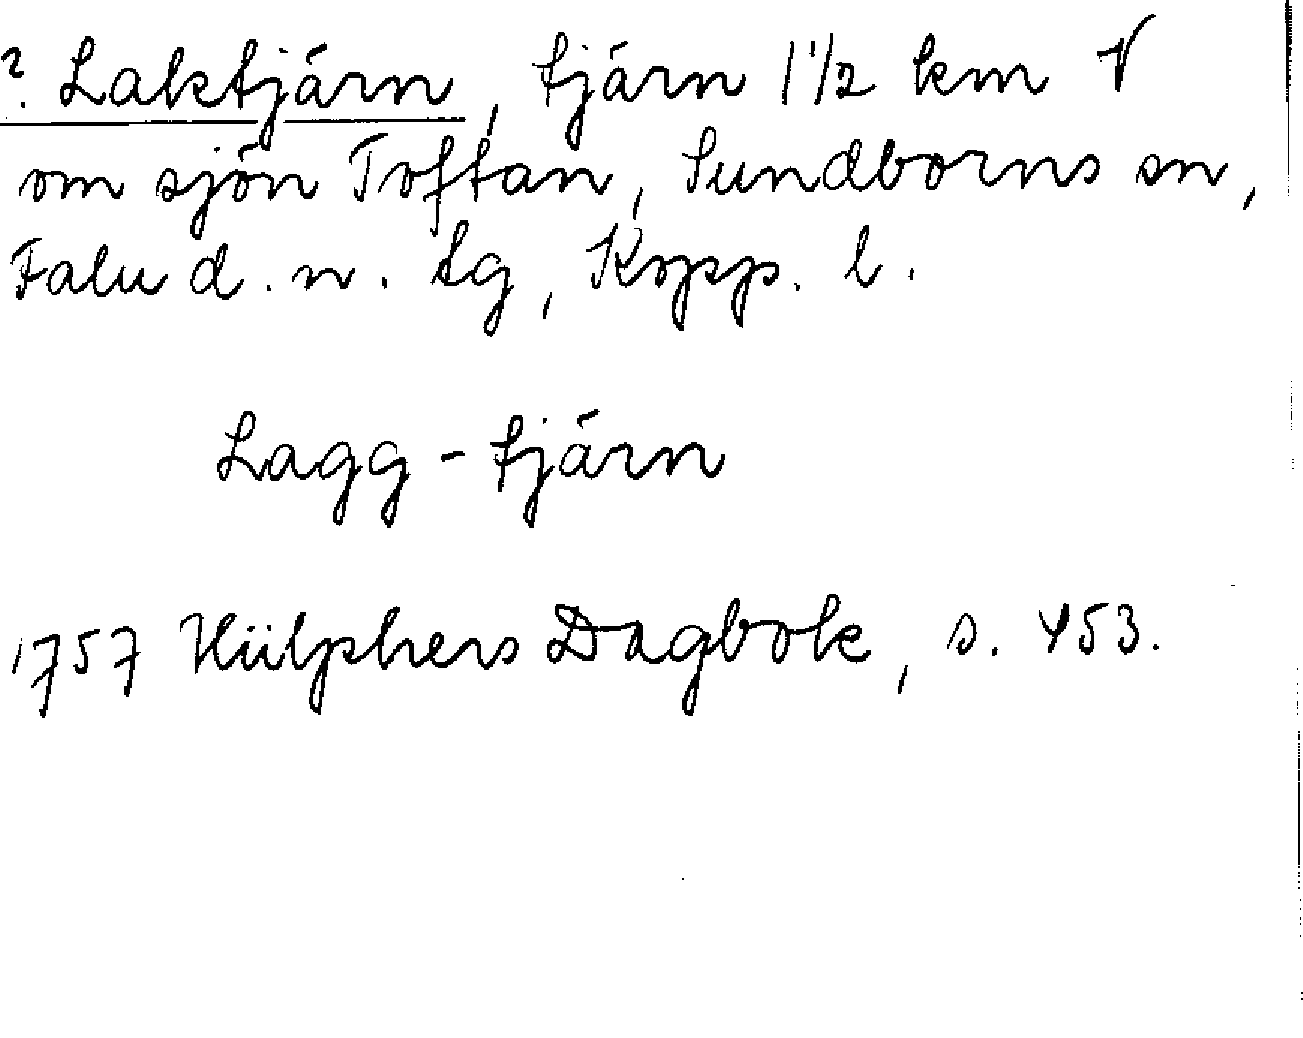 ? Laktjärn, tjärn 1 1/2 km V
om sjön Toftan, Sundborns sn,
Falu d. n. tg, Kopp. l.
Lagg-tjärn
1757 Hülphers Dagbok, s. 453.